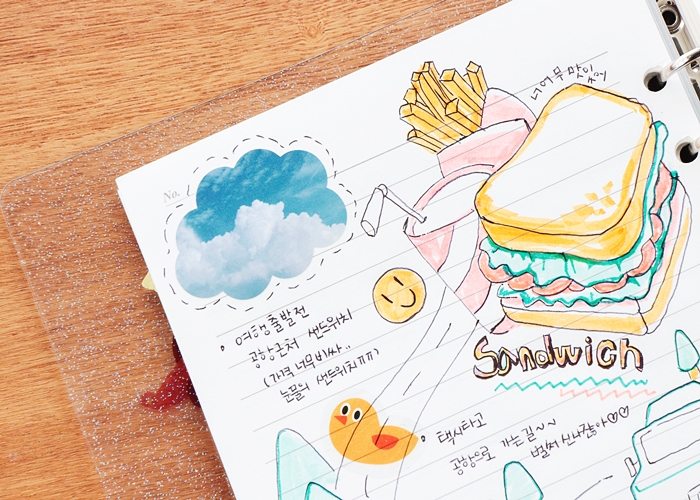 No. 1
너어무 맛있어
여행출발전
공항근처 샌드위치
(가격 너무비싸..
눈물의 샌드위치ㅠㅠ)
Sandwich
택시타고
공항으로 가는길~~
벌써 신나잖아♡♡